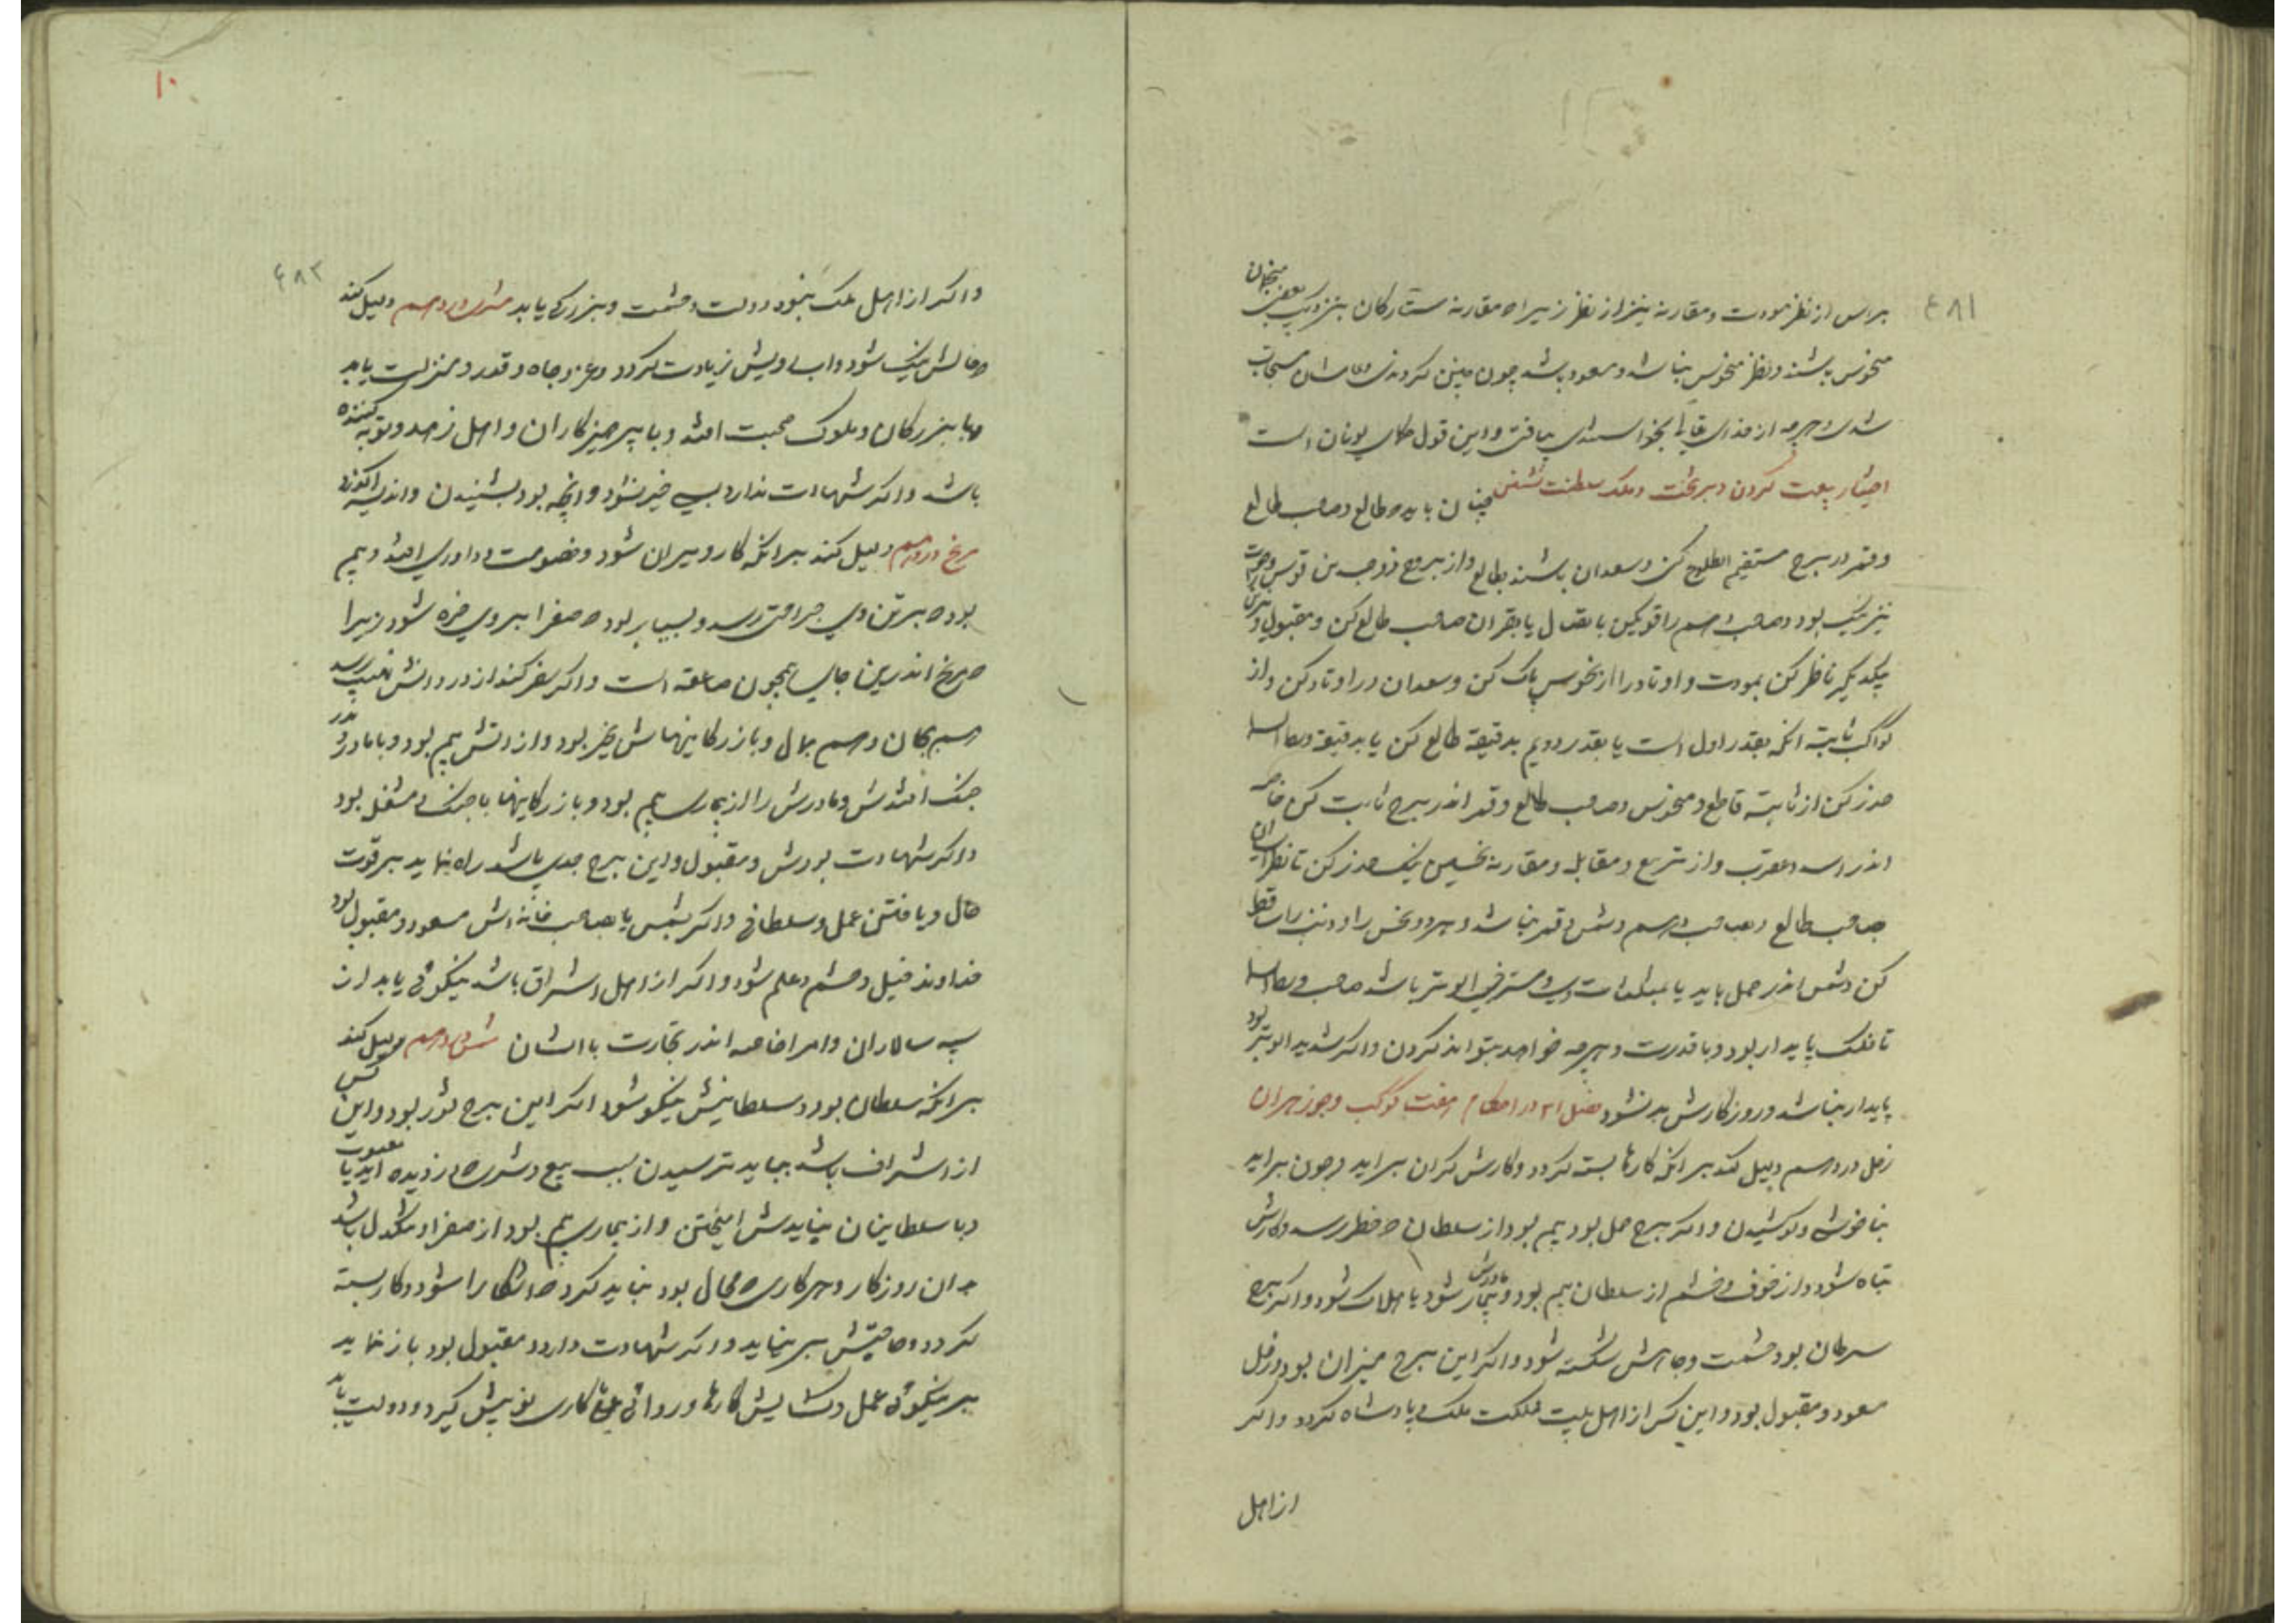 براس از نظر مودت و مقارنه نیز از نظر زیرا که مقارنه ستارکان بنزدیک بعضی منجمان
منحوس باشند و نظر منحوس نباشد و مسعود باشد چون چنین کردی
و این قول حکمای یونان است
اختیار بیعت کردن و بر تخت و ملک سلطنت نشستن چنان باید که طالع و صاحب طالع
و قمر در برج مستقیم الطلوع کن و سعدان باشند بطالع و از بروج ذو جسدین قوس و حوت
نیز نیک بود و صاحب دهم را قوی کن باتصال یا بقران صاحب طالع کن و مقبول
یکدیگر ناظر کن بمودت و اوتاد را از نحوس پاک کن و سعدان در اوتاد کن و از
کواکب ثابته انکه بقدر اول است یا بقدر دویم بدقیقه طالع کن یا بدقیقه وسط السما
حذر کن از ثابته قاطع و منحوس و صاحب طالع و قمر اندر برج ثابت کن خاصه
اندر اسد و عقرب و از تربیع و مقابله و مقارنه نحسین نیک حذر کن تا نظر ایشان
بصاحب طالع و صاحب دهم و شمس و قمر نباشد و هر دو نحس را و ذنب را ساقط
کن و شمس اندر حمل باید یا بمثلثات وی و مشتری فی الوتد باشد صاحب وسط السما
تا ملک پایدار بود و با قدرت و هرچه خواهد بتواند کردن و اکر شدید الوتد بود
پایدار نباشد و روزکارش بد نشود فصل ۱۲ در احکام هفت کوکب و جوزهران
زحل در دهم دلیل کند بر انکه کارها بسته کردد و کارش کران براید و چون براید
بناخوشی و کوشیدن و اکر برج حمل بود بیم بود از سلطان که خطر رسد و کارش
تباه شود و از خوف و خشم از سلطان بیم بود و مادرش بیمار شود یا هلاک شود و اکر برج
سرطان بود حشمت و جاهش شکسته شود و اکر این برج میزان بود و زحل
مسعود و مقبول بود و این کس از اهل بیت مملکت ملک و پادشاه کردد و اکر
از اهل
۴۸۱
۱۰
۴۸۲
و اکر از اهل ملک نبود دولت و حشمت و بزرکی یابد مشتری در دهم دلیل کند
که حالش نیک شود و اب رویش زیادت کردد و عز و جاه و قدر و منزلت یابد
و با بزرکان و ملوک صحبت افتد و با پرهیزکاران و اهل زهد و توبه کننده
باشد و اکر شهادت ندارد بی خبر شود و انچه بود بشنیدن و اندیشه
مریخ در دهم دلیل کند بر انکه کار ویران شود و خصومت و داوری افتد و بیم
بود که بر تن وی جراحتی رسد و بسیار بود که صفرا بر وی خیره شود زیرا
که مریخ اندرین جای همچون صاعقه است و اکر سفر کند از درد و اتش نهیب رسد
هم بجان و هم بمال و بازرکانیهاش بخیر بود و از اتش بیم بود و با مادر و پدر
جنک افتدش و مادرش را از بیماری بیم بود و بازرکانیها با جنک و مشغل بود
و اکر شهادت بودش و مقبول و این برج جدی باشد راه نماید بر قوت
حال و یافتن عمل و سلطانی و اکر بشمس یا بصاحب خانه اش مسعود و مقبول بود
خداوند خیل و حشم و علم شود و اکر از اهل اشراق باشد نیکوئی یابد از
سپه سالاران و امرا خاصه اندر تجارت با ایشان شمس در دهم دلیل کند
بر انکه سلطان بود و سلطانیش نیکو شود اکر این برج ثور بود و این کس
از اشراف باشد بباید ترسیدن بسبب بیع و شری که دزدیده اید یا معیوب
و با سلطانیان نبایدش امیختن و از بیماری بیم بود از صفرا و تنکدل باشد
بدان روزکار و هر کاری که محال بود نباید کرد که اشکارا شود و کار بسته
کردد و حاجتش بر نیاید و اکر شهادت دارد و مقبول بود باز نماید
بر نیکوئی عمل و کشایش کارها و روائی کاری نو پیش کیرد و دولت یابد